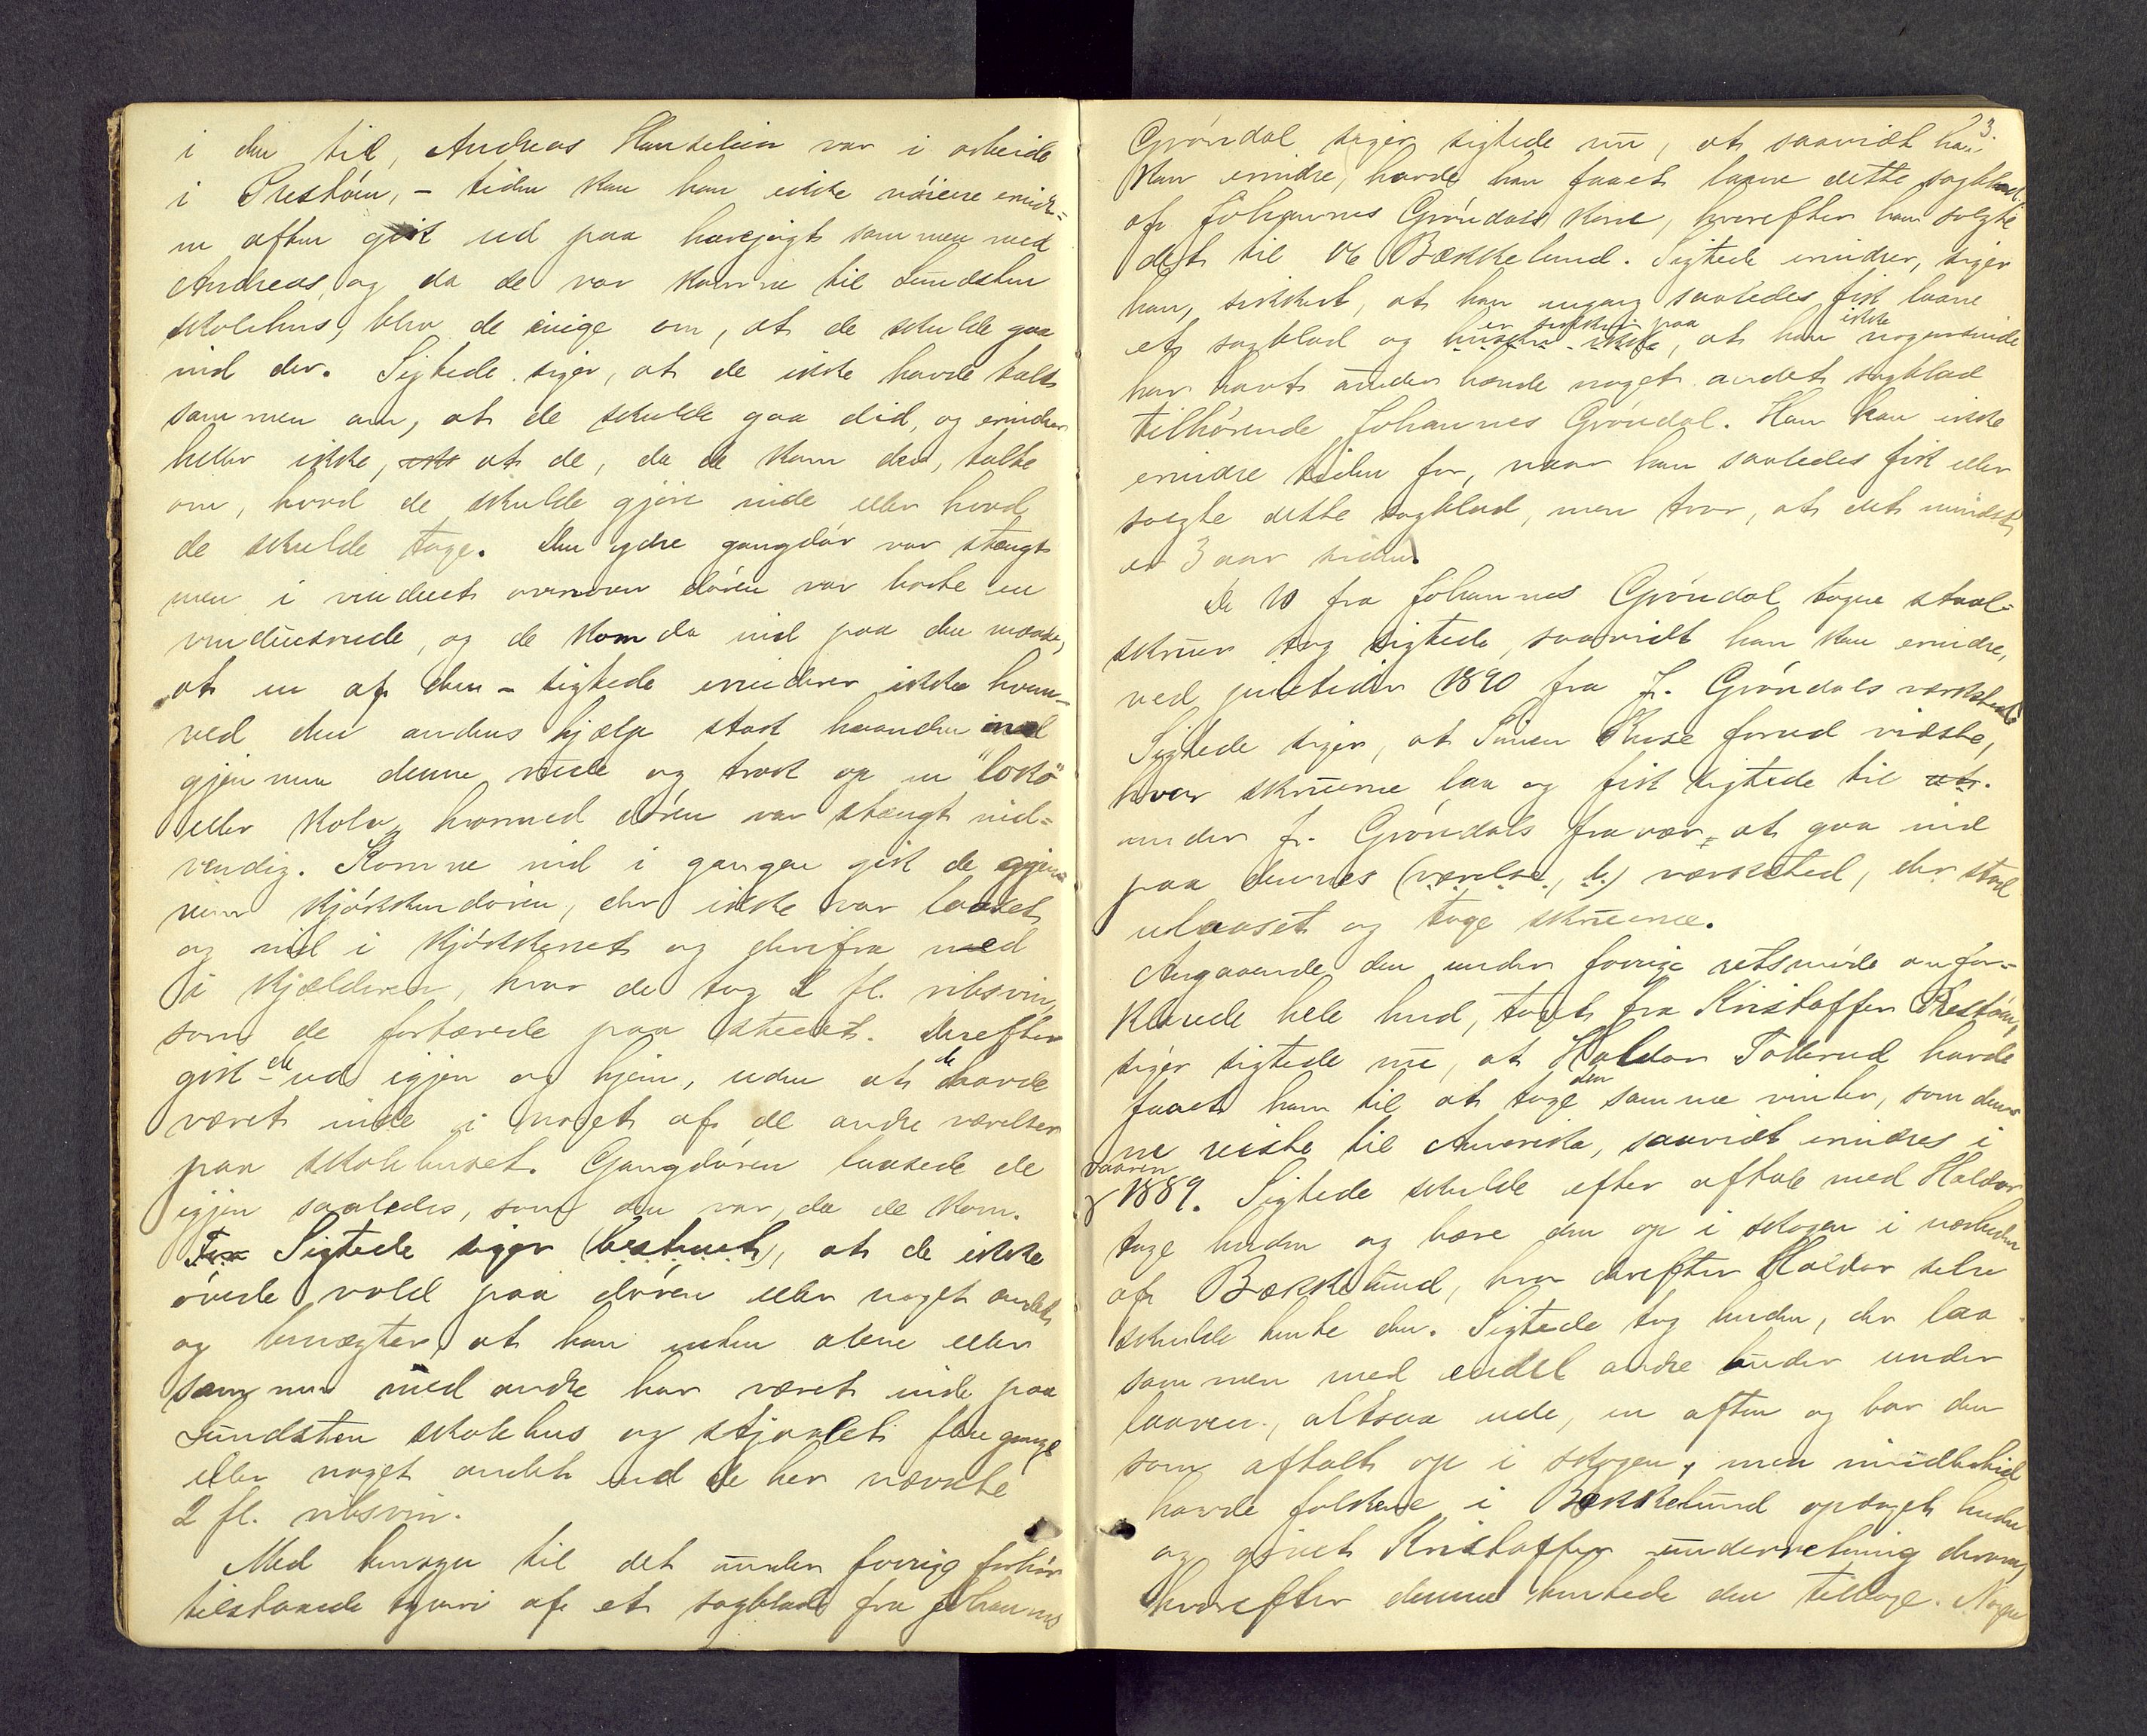 i den tid, Andreas Hanseleier var i arbeide
i Prestöien, - tiden kan han ikke nöiere erind-
en aften gik ud paa harejagt sammen med
Andreas, og da de var komne til Lundsten
skolehus, blev de enige om, at de skulde gaa
ind der. Sigtede siger, at de ikke havde talt
sammen om, at de skulde gaa did, og erindrer
heller ikke, at de, da de kom der, talte
om, hvad de skulde gjöre inde eller hvad
de skulde tage. Den ydre gangdör var stængt
men i vinduet ovenover dören var borte en
vinduesrude, og de kom da ind paa den maade,
at en af dem - sigtede erindrer ikke hvem -
ved den andens hjælp stak haanden ind
gjennem denne rude og trak op en "loko"
eller kolv, hvormed dören var stængt ind-
vendig. Komne ind i gangen gik de gjen-
nem kjökkendören, der ikke var laaset
og ind i kjökkenet og derifra ned
i kjælderen, hvor de tog 2 fl. ribsvin,
som de fortærede paa stedet. Derefter
gik de ud igjen og hjem, uden at de havde
været inde i noget af de andre værelser
paa skolehuset. Gangdören laasede de
igjen saaledes, som den var, da de kom.
Sigtede siger (bestemt), at de ikke
övede vold paa dören eller noget andet
og benægter, at han enten alene eller
sammen med andre har været inde paa
Lundsten skolehus og stjaalet flere gange
eller noget andet end de her nævnte
2 fl. ribsvin.
Med hensyn til det under forrige forhör
tilstaaede tyveri af et sagblad fra Johannes
3.
Gröndal siger sigtede nu, at saavidt han
kan erindre, havde han faaet laane dette sagblad
af Johannes Gröndals kone, hvorefter han solgte
det til Ole Bækkelund. Sigtede erindrer, siger
han, sikkert, at han engang saaledes fik laane
et sagblad og er sikker paa, at han ikke nogensinde
har havt under hænde noget andet sagblad
tilhörende Johannes Gröndal. Han kan ikke
erindre tiden for, naar han saaledes fik eller
solgte dette sagblad, men tror, at det mindst
er 3 aar siden.
De 10 fra Johannes Gröndal tagne staal-
skruer tog sigtede, saavidt han kan erindre,
ved juletider 1890 fra J. Gröndals værksted
Sigtede siger, at Simen Kuse forud vidste,
hvor skruerne laa og fik sigtede til
under J. Gröndals fravær, at gaa ind
paa dennes (værelse, d.) værksted, der stod
ulaaset og tage skruerne.
Angaaende den under forrige retsmöde omför-
klarede hele hud, taget fra Kristoffer Prestöien,
siger sigtede nu, at Haldor Tollerud havde
faaet ham til at tage den samme vinter, som den-
ne reiste til Amerika, saavidt erindres i
vaaren 1889. Sigtede skulde efter aftale med Haldor
tage huden og bære den op i skogen i nærheden
af Bækkelund, hvor derefter Haldor selv
skulde hente den. Sigtede tog huden, der laa
sammen med endel andre huder under
laaven, altsaa ude, en aften og bar den
som aftalt op i skogen, men imidlertid
havde folkene i Bækkelund opdaget huden
og givet Kristoffer underretning derom,
hvorefter denne hentede den tilbage. Nogen